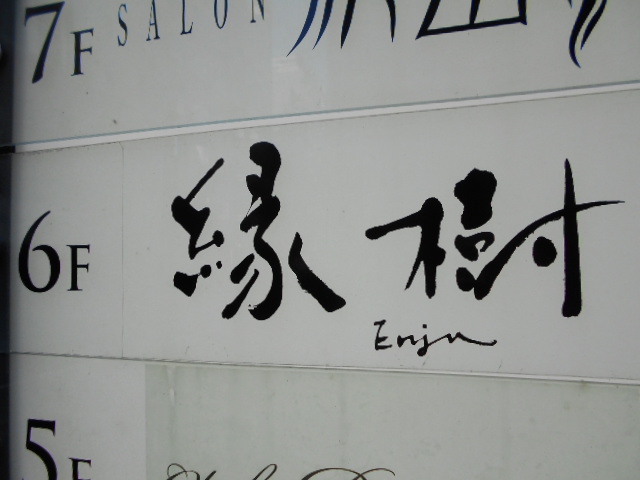 7F SALON
6F 縁樹
Enju
5F